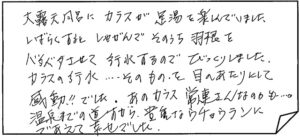 大露天風呂に カラスが 足湯を楽しんでいました。
しばらくすると しゃがんで そのうち 羽根を
バタバタさせて 行水するので びっくりしました。
カラスの行水……そのもの、を 目のあたりにして
感動!! でした。あのカラス 常連さんなのかも…。
温泉までの道すがら、貴重なウチョウランに
であえて 幸せでした。